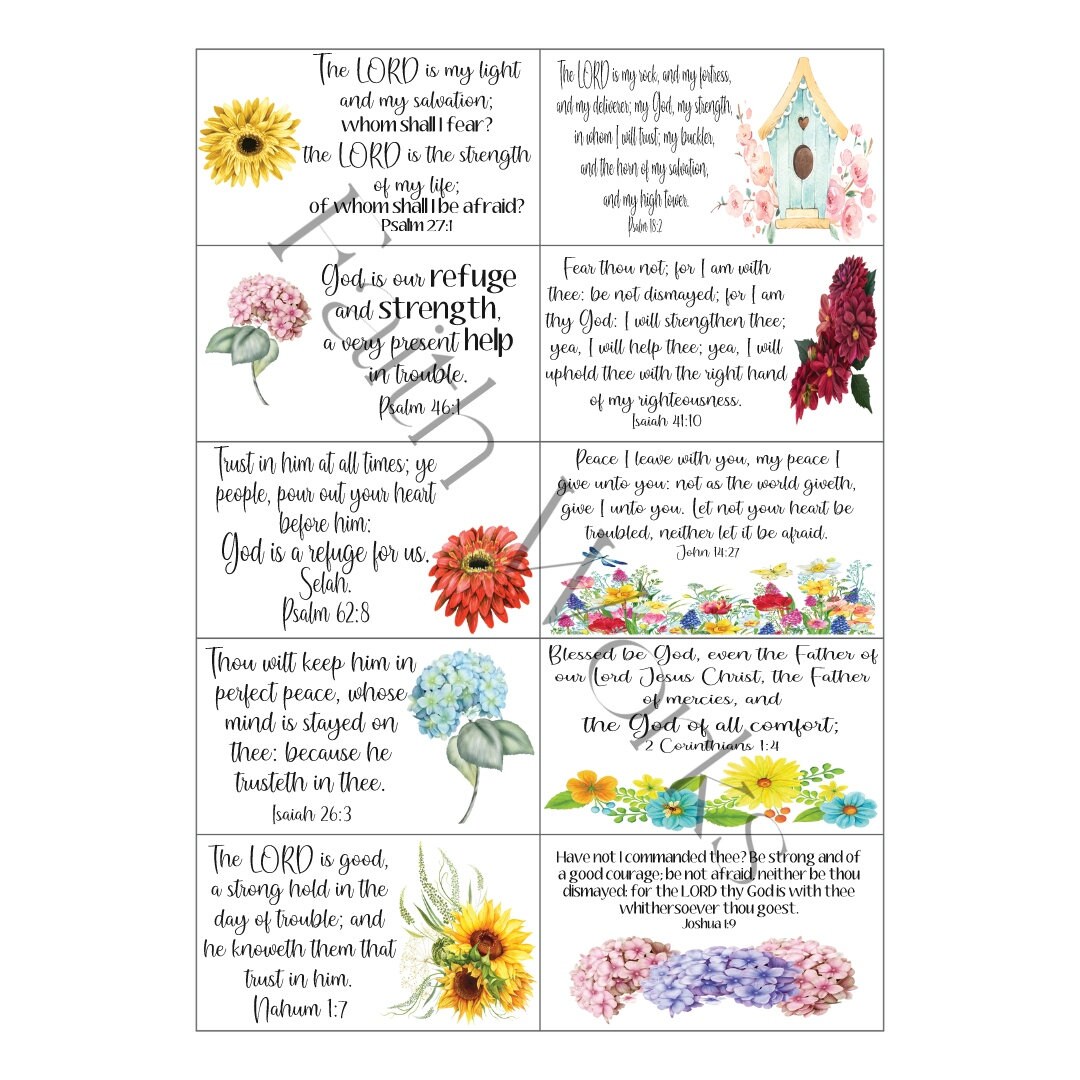 The LORD is my light
and my salvation;
whom shall I fear?
the LORD is the strength
of my life;
of whom shall I be afraid?
Psalm 27:1
The LORD is my rock, and my fortress,
and my deliverer; my God, my strength,
in whom I will trust; my buckler,
and the horn of my salvation,
and my high tower.
Psalm 18:2
God is our refuge
and strength,
a very present help
in trouble.
Psalm 46:1
Fear thou not; for I am with
thee: be not dismayed; for I am
thy God: I will strengthen thee;
yea, I will help thee; yea, I will
uphold thee with the right hand
of my righteousness.
Isaiah 41:10
Trust in him at all times; ye
people, pour out your heart
before him:
God is a refuge for us.
Selah.
Psalm 62:8
Peace I leave with you, my peace I
give unto you: not as the world giveth,
give I unto you. Let not your heart be
troubled, neither let it be afraid.
John 14:27
Thou wilt keep him in
perfect peace, whose
mind is stayed on
thee: because he
trusteth in thee.
Isaiah 26:3
Blessed be God, even the Father of
our Lord Jesus Christ, the Father
of mercies, and
the God of all comfort;
2 Corinthians 1:4
The LORD is good,
a strong hold in the
day of trouble; and
he knoweth them that
trust in him.
Nahum 1:7
Have not I commanded thee? Be strong and of
a good courage; be not afraid, neither be thou
dismayed: for the LORD thy God is with thee
whithersoever thou goest.
Joshua 1:9
Faith Works